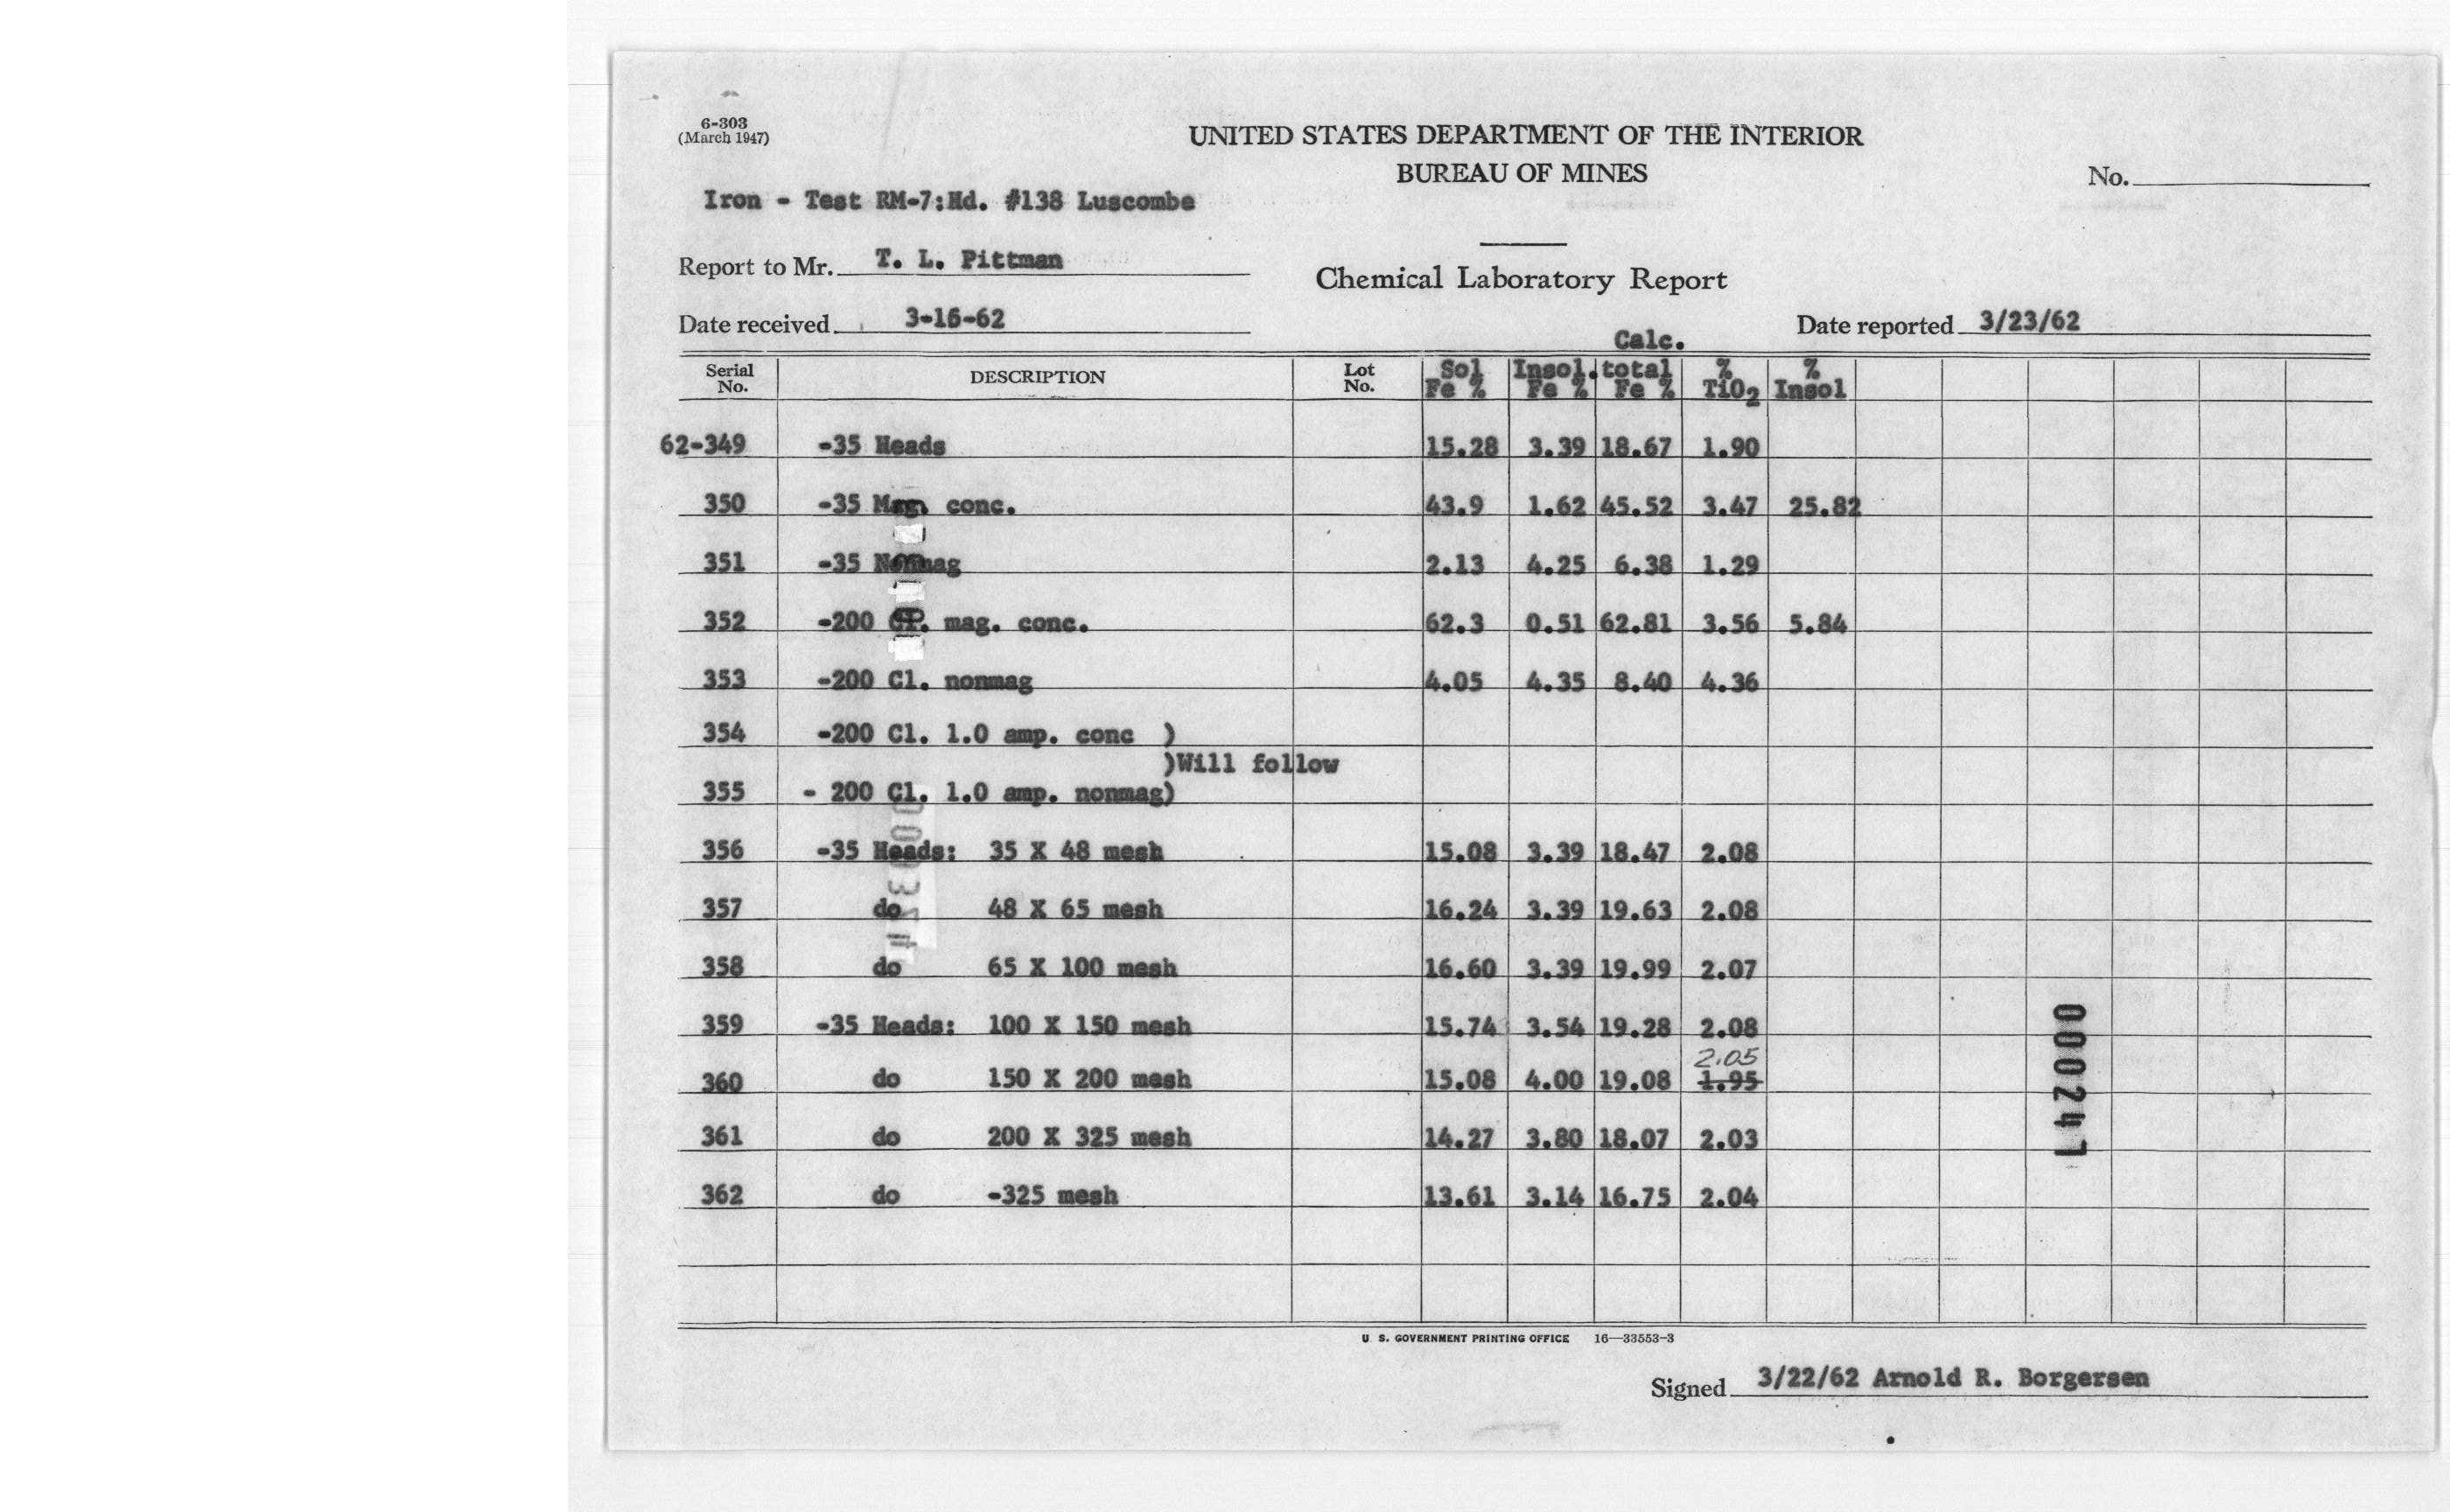 6-303
(March 1947)
UNITED STATES DEPARTMENT OF THE INTERIOR
BUREAU OF MINES
No.
Iron - Test RM-7:Hd. #138 Luscombe
Report to Mr. T. L. Pittman
Chemical Laboratory Report
Date received 3-16-62
Date reported 3/23/62
Calc.
Serial No. DESCRIPTION Lot No. Sol Fe % Insol. Fe % total Fe % % TiO2 % Insol
62-349 -35 Heads 15.28 3.39 18.67 1.90
350 -35 Mag. conc. 43.9 1.62 45.52 3.47 25.82
351 -35 Nonmag 2.13 4.25 6.38 1.29
352 -200 Cl. mag. conc. 62.3 0.51 62.81 3.56 5.84
353 -200 Cl. nonmag 4.05 4.35 8.40 4.36
354 -200 Cl. 1.0 amp. conc )
)Will follow
355 - 200 Cl. 1.0 amp. nonmag)
356 -35 Heads: 35 X 48 mesh 15.08 3.39 18.47 2.08
357 do 48 X 65 mesh 16.24 3.39 19.63 2.08
358 do 65 X 100 mesh 16.60 3.39 19.99 2.07
359 -35 Heads: 100 X 150 mesh 15.74 3.54 19.28 2.08
2.05
360 do 150 X 200 mesh 15.08 4.00 19.08 1.95
361 do 200 X 325 mesh 14.27 3.80 18.07 2.03
362 do -325 mesh 13.61 3.14 16.75 2.04
000241
U. S. GOVERNMENT PRINTING OFFICE 16—33553-3
Signed 3/22/62 Arnold R. Borgersen